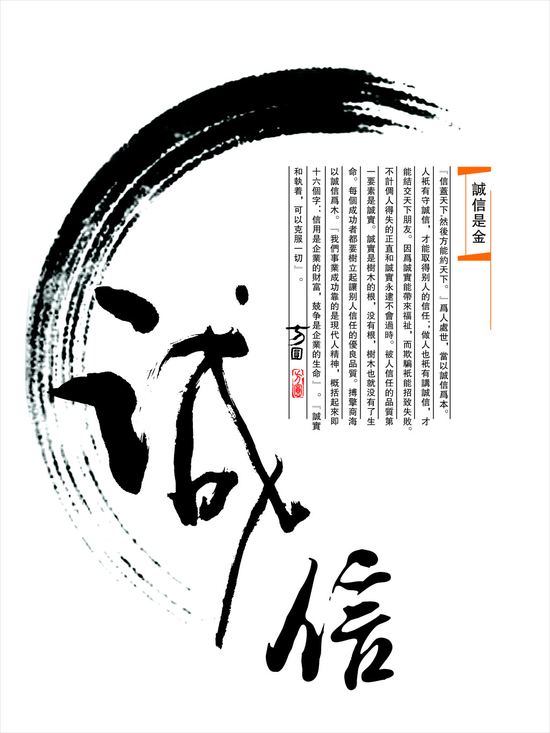 誠信是金
『信蓋天下,然後方能約天下。』爲人處世，當以誠信爲本。
人衹有守誠信，才能取得别人的信任；做人也衹有講誠信，才
能結交天下朋友。因爲誠實能帶來福祉，而欺騙衹能招致失敗。
不計個人得失的正直和誠實永遠不會過時。被人信任的品質第
一要素是誠實。誠實是樹木的根，没有根，樹木也就没有了生
命。每個成功者都要樹立起讓别人信任的優良品質。搏擊商海
以誠信爲木。『我們事業成功靠的是現代人精神，概括起來即
十六個字：信用是企業的財富，兢争是企業的生命』。『誠實
和執着，可以克服一切』。
方圓
誠
信